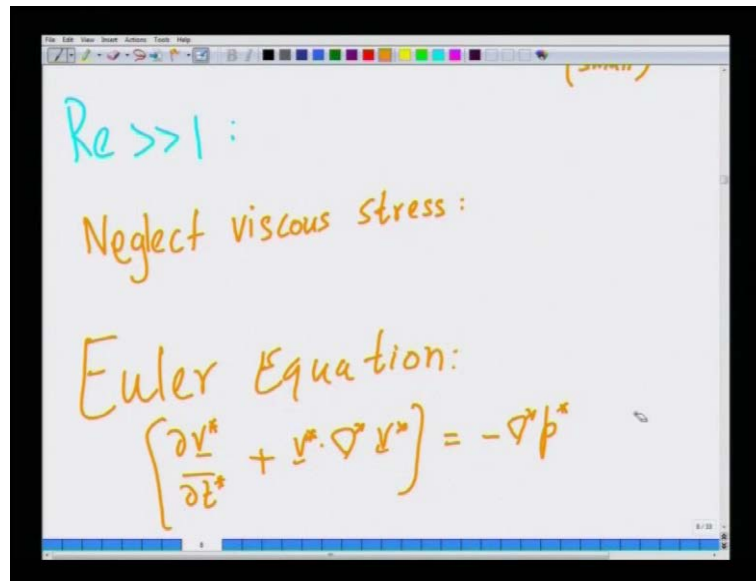 File Edit View Insert Actions Tools Help
(small)
Re >> 1 :
Neglect viscous stress :
Euler Equation:
[∂v*/∂t* + v*·∇*v*] = -∇*p*
8/33
8